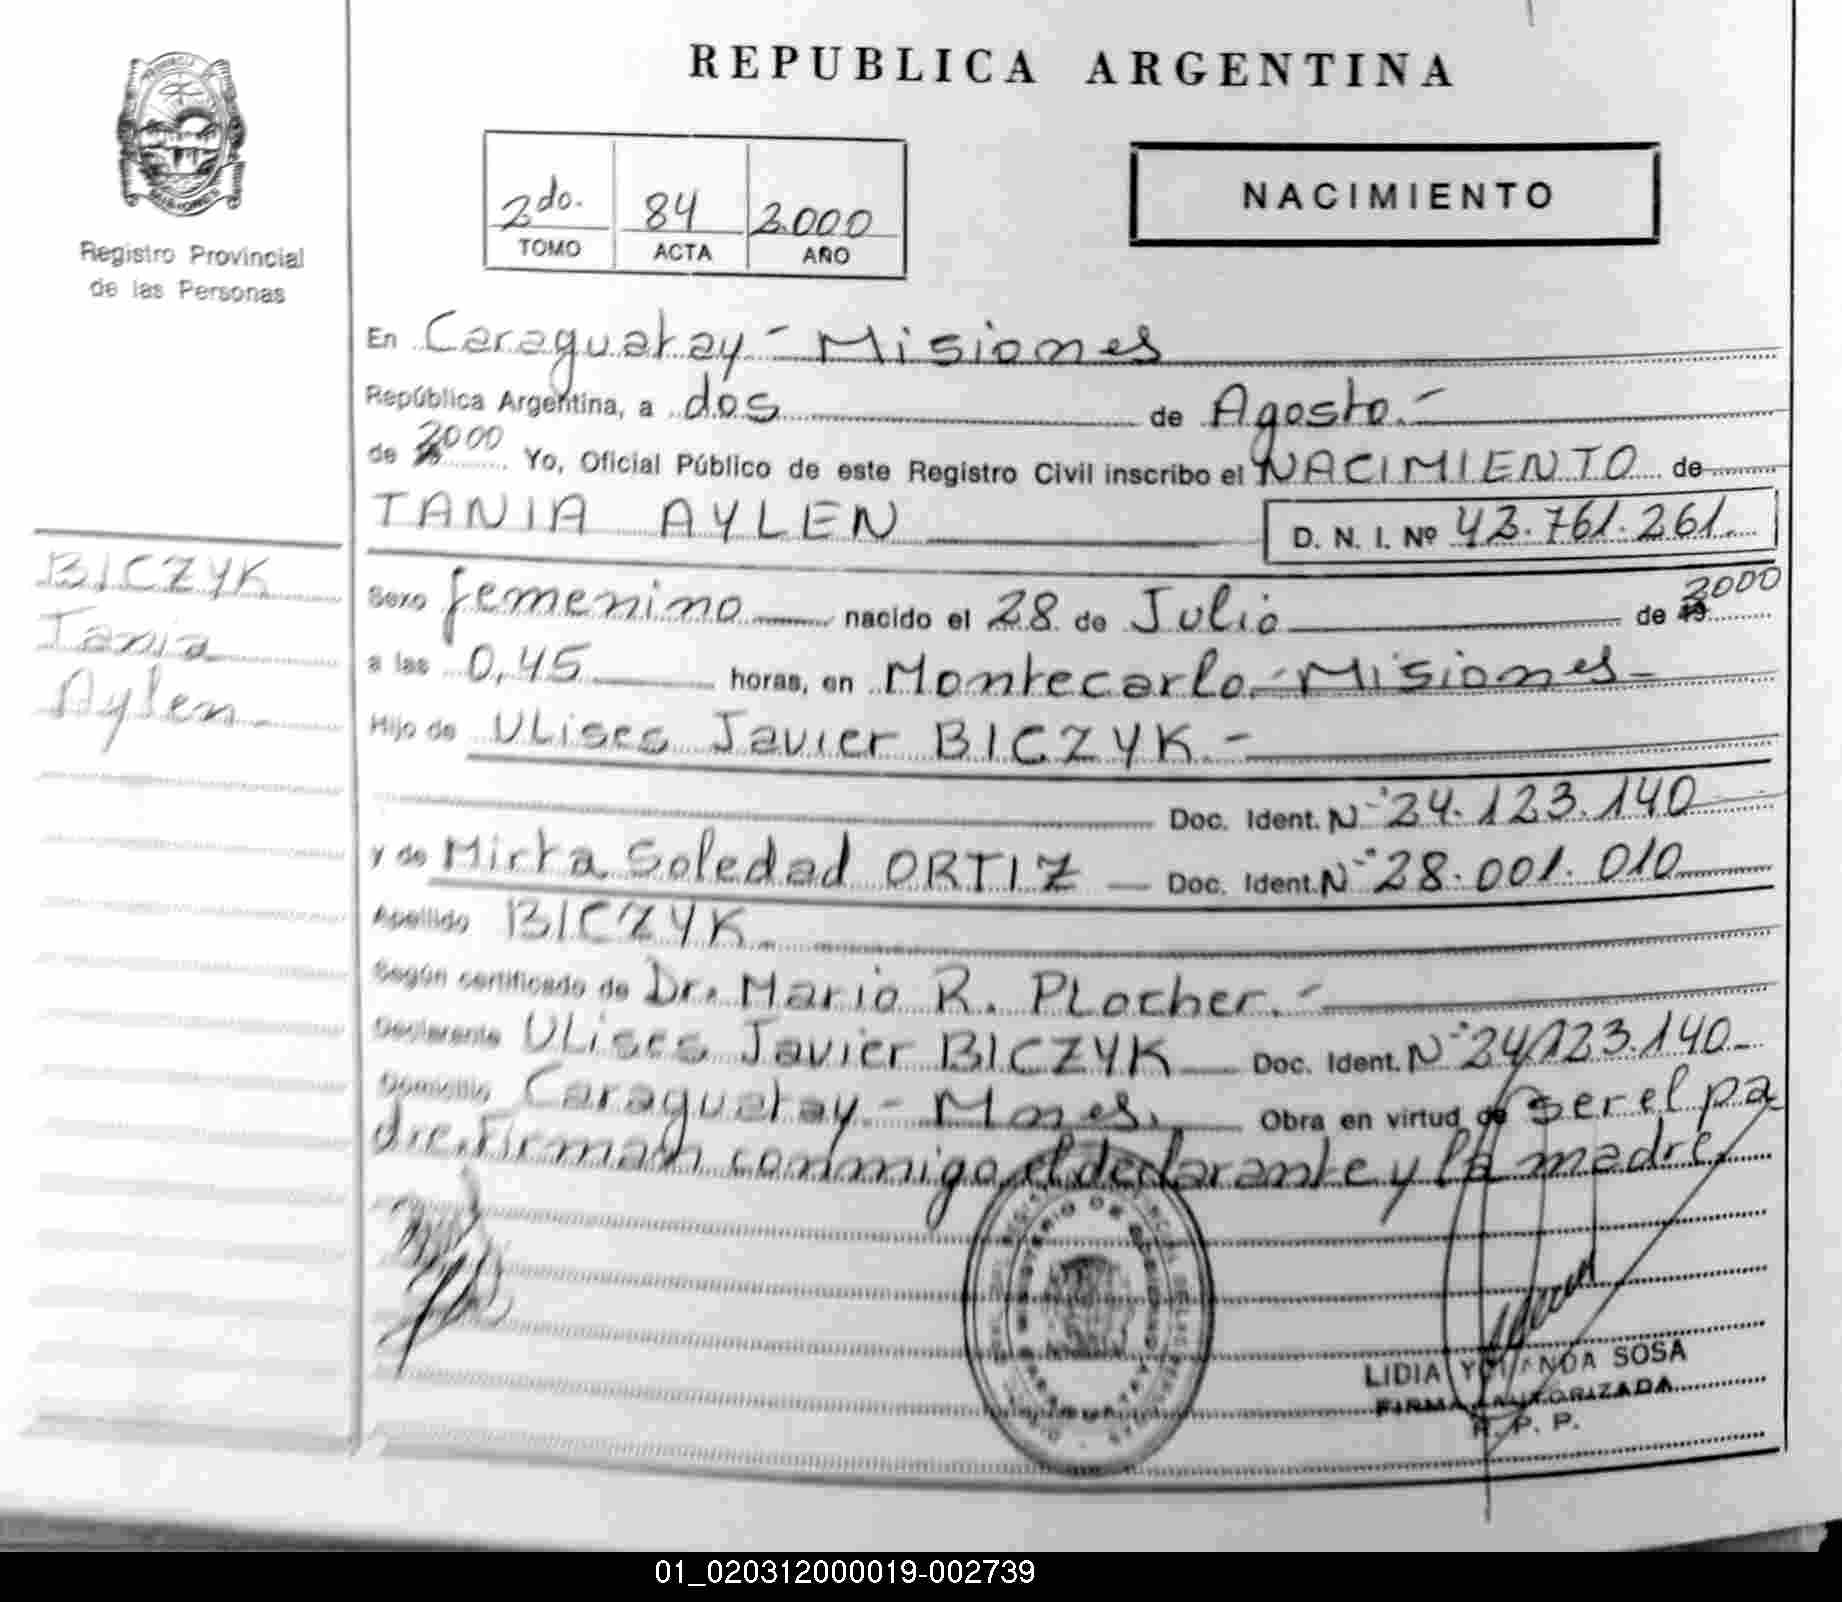 REPUBLICA ARGENTINA
2do. 84 2.000
TOMO ACTA AÑO
NACIMIENTO
Registro Provincial
de las Personas
En Caraguatay - Misiones
República Argentina, a dos de Agosto.-
de 2000 Yo, Oficial Público de este Registro Civil inscribo el NACIMIENTO de
TANIA AYLEN D. N. I. Nº 42.761.261.
BICZYK
Tania
Aylen
Sexo femenino nacido el 28 de Julio de 2000
a las 0,45 horas, en Montecarlo - Misiones -
Hijo de ULises Javier BICZYK.-
Doc. Ident. Nº 24.123.140
y de Mirta Soledad ORTIZ Doc. Ident. Nº 28.001.010
Apellido BICZYK
Según certificado de Dr. Mario R. PLocher.-
Declarante ULises Javier BICZYK Doc. Ident. Nº 24.123.140
Domicilio Caraguatay - Mnes. Obra en virtud de ser el pa
dre. Firman conmigo el declarante y la madre.
MISIONES
LIDIA YOLANDA SOSA
FIRMA AUTORIZADA
R. P. P.
01_020312000019-002739